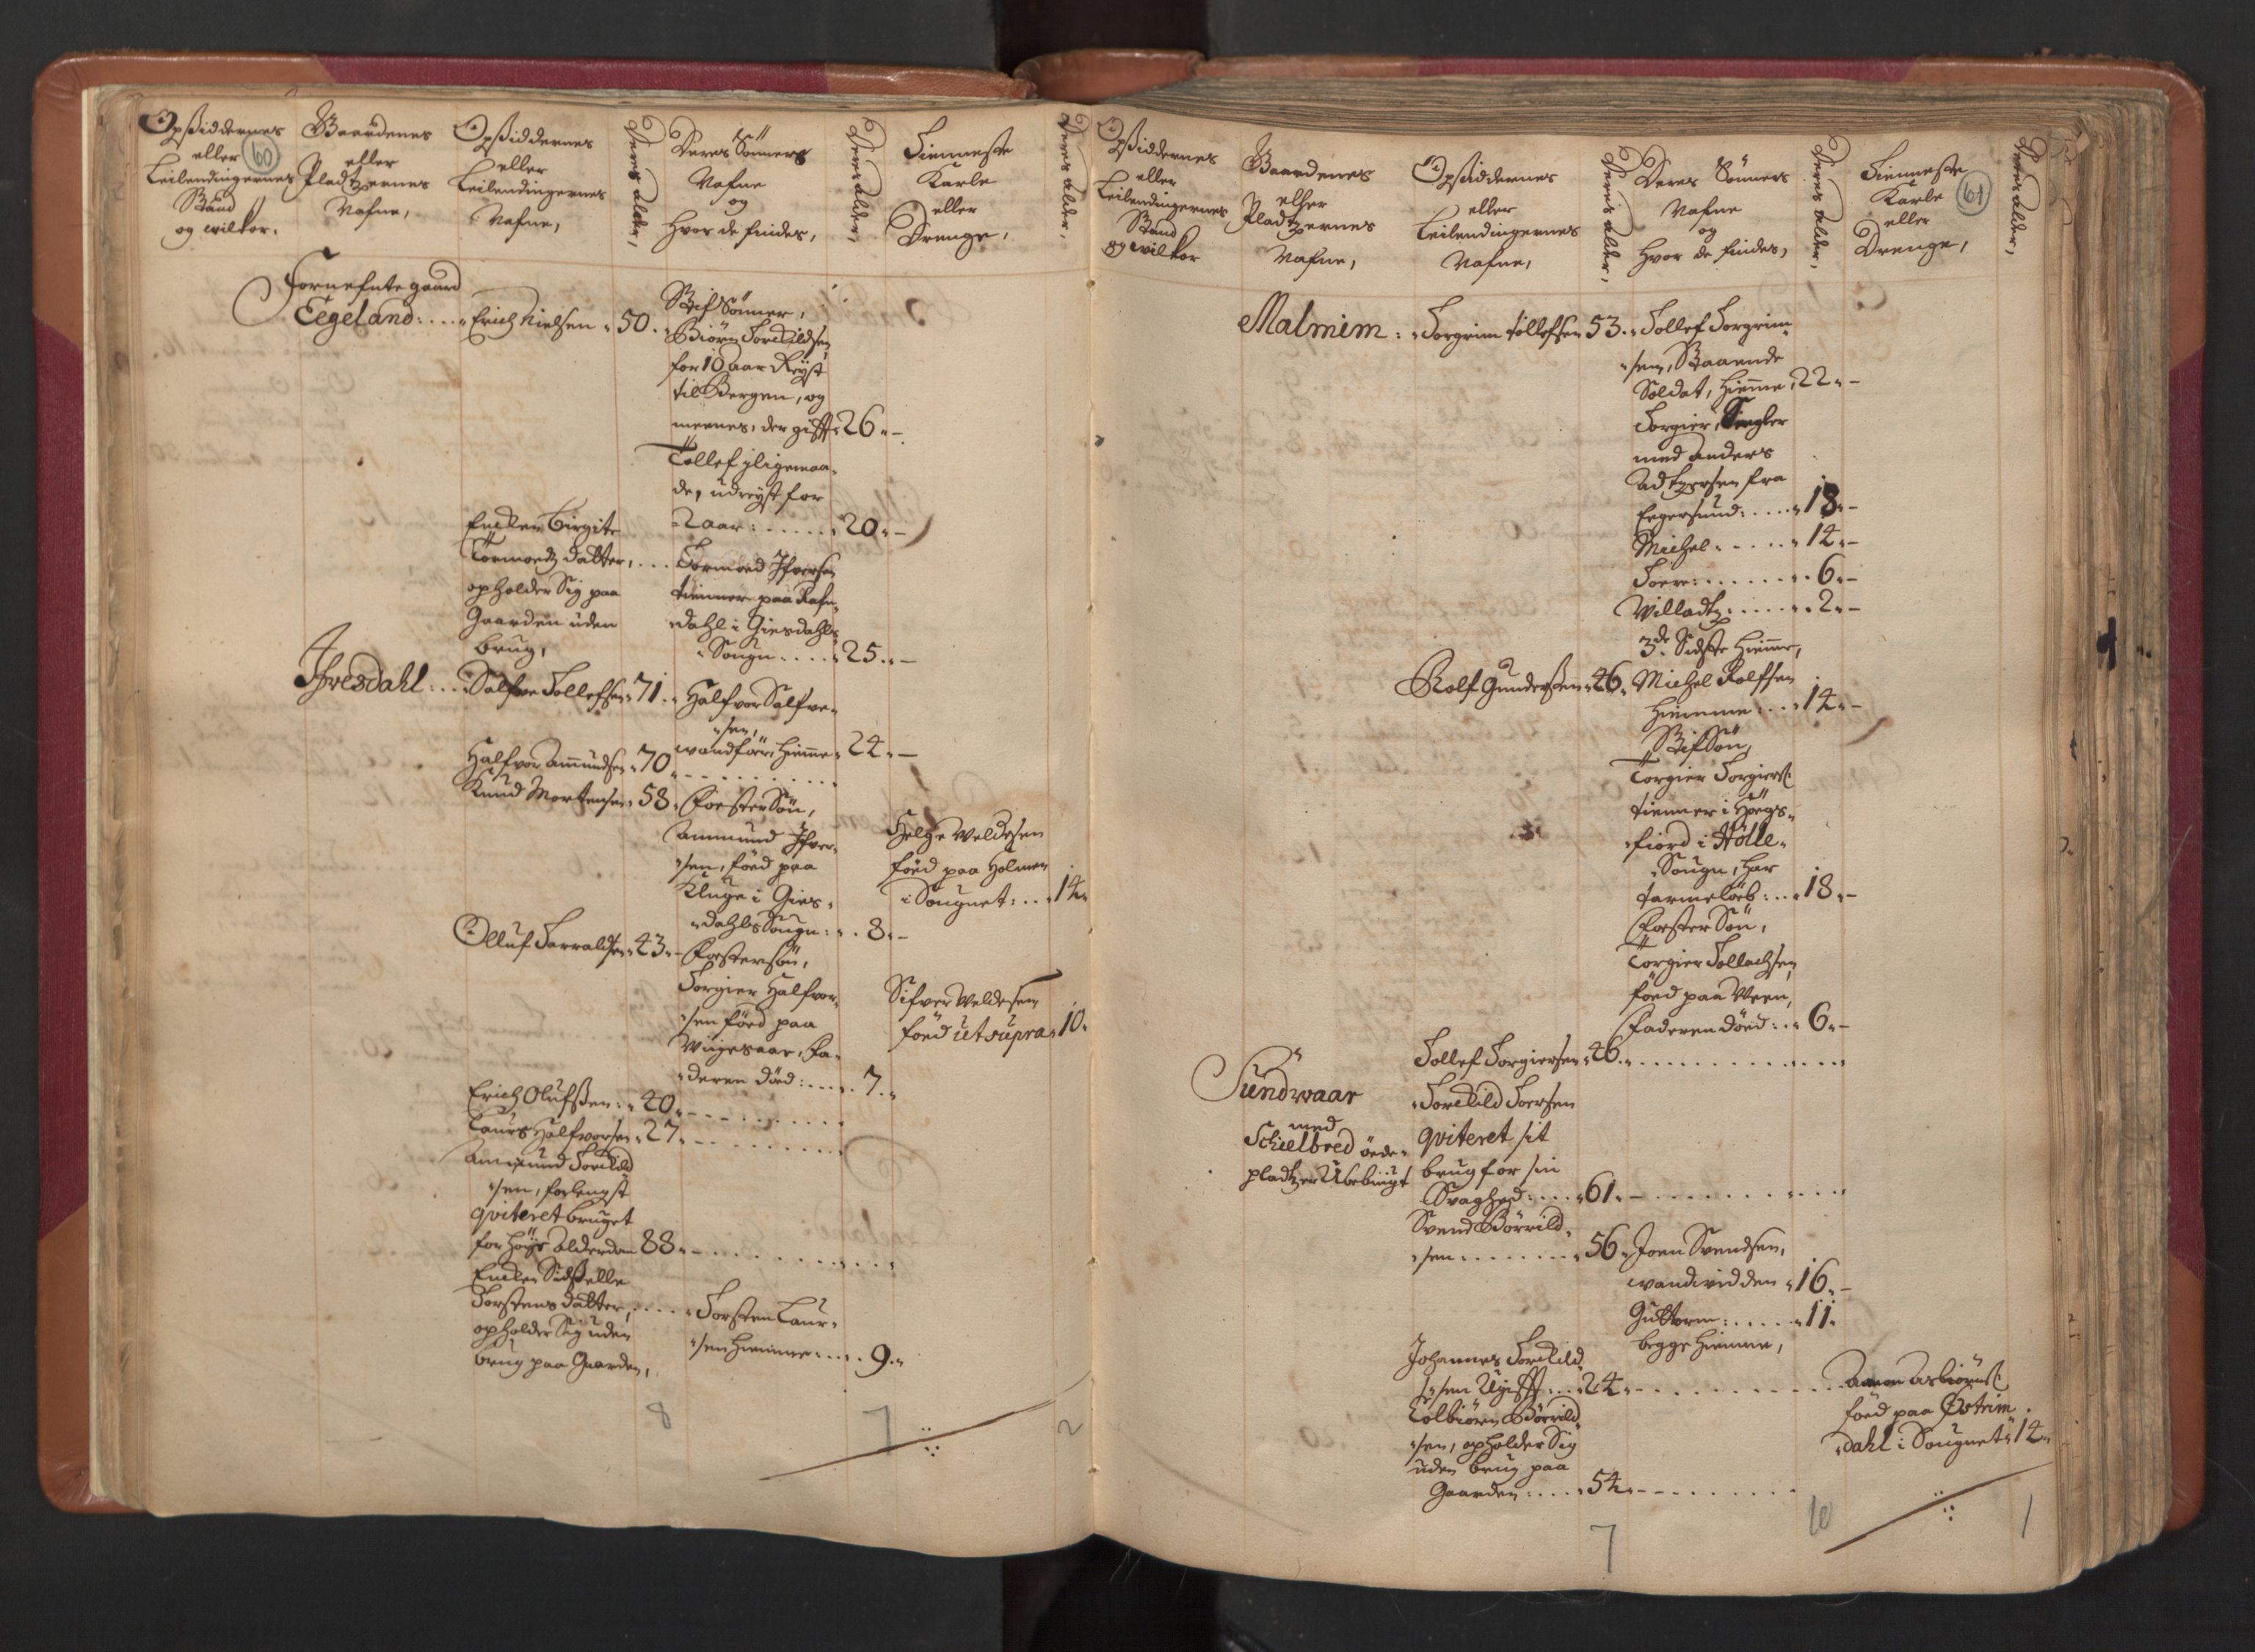 Opsiddernes
eller
Leilendingernes
Stand
og wilkor.
60
Gaardenes
eller
Pladtzernes
Nafne,
Opsiddernes
eller
Leilendingernes
Nafne,
Deris alder,
Deres Sönners
Nafne
og
hvor de findes,
Deris alder,
Tienneste
Karle
eller
Drenge,
Deres alder,
Fornefnte gaard
Eegeland: . . . Erich Nielsen 50.
Stif Sönner,
Biörn Torkildsen
for 10 aar Reyst
til Bergen, og
meenes, der gifft 26
Tollef iligemaa-
de, udreyst for
2 aar: . . . . . . 20
Encken Birgite
Tormoedz datter, . . .
opholder Sig paa
Gaarden uden
brug,
Tormoed Ifversen
tienner paa Rafn-
dahl i Giesdahls
Sougn . . . . 25
Ifvesdahl: . . . Salfve Tollefsen 71.
Halfvor Salfve-
sen,
wandför, hiemme 24
Halfvor Ammundsen 70
Knud Mortensen 58.
Foester Sön,
Ammund Ifver-
sen, föed paa
Kluge i Gies-
dahls Sougn: 8
Helge Weldesen
föed paa Holmen
i Sougnet: . . 14
Olluf Tarraldsen 43
Foestersön,
Torgier Halfvor-
sen föed paa
Fa-
deren död: . . . 7.
Sifver Weldesen
föed ut supra 10.
Erich Olufsen: 40
Laurs Halfvorsen 27
Ammund Torkild-
sen, forlengst
qviteret bruget
for höye alderdom 88
Encken Sidselle
Torstens datter, . . . .
opholder Sig uden
brug paa Gaarden,
Torsten Laur-
sen hiemme: . . . 9.
8
7
2
Opsiddernes
eller
Leilendingernes
Stand
og wilkor
Gaardenes
eller
Pladtzernes
Nafne,
Opsiddernes
eller
Leilendingernes
Nafne,
Deris alder,
Deres Sönners
Nafne
og
hvor de findes,
Deris alder,
Tienneste
Karle
eller
Drenge,
61
Deres alder,
Malmim: Torgrim Tollefsen 53.
Tollef Torgrim-
sen, Staaende
Soldat, hiemme 22
Torgier, Seigler
med Anders
Adtzersen fra
Eegersund: . . . . 18
Michel: . . . . . 14
Toer: . . . . . . 6
Willadtz: . . . . . 2
3de Sidste hiemme,
Rolf Gundersen 46.
Michel Rolfsen
hiemme: . . . 14
Stif Sön,
Torgier Torgiers:
tienner i Högs-
fiord i Hölle-
Sougn, har
. . 18
Foester Sön,
Torgier Tollachsen
föed paa Veen,
Faderen död: . . 6
Tollef Torgiersen 46
Sundvaar
med
Schielbred öede-
pladtz er Ubebugt
Torkild Toersen
qviteret sit
brug for sin
Svaghed: . . . . 61.
Svend Börrild-
sen . . . . . . . . 56.
Joen Svendsen,
wandvidden 16
Guttorm: . . . . . 11.
begge hiemme,
Johannes Torkild-
sen Ugifft: . . . 24
Aanen Asbiörns:
föed paa Östrim-
dahl i Sougnet 14
Tolbiörn Börrild-
sen, opholder Sig
uden brug paa
Gaarden: . . . . 54
7
10
1